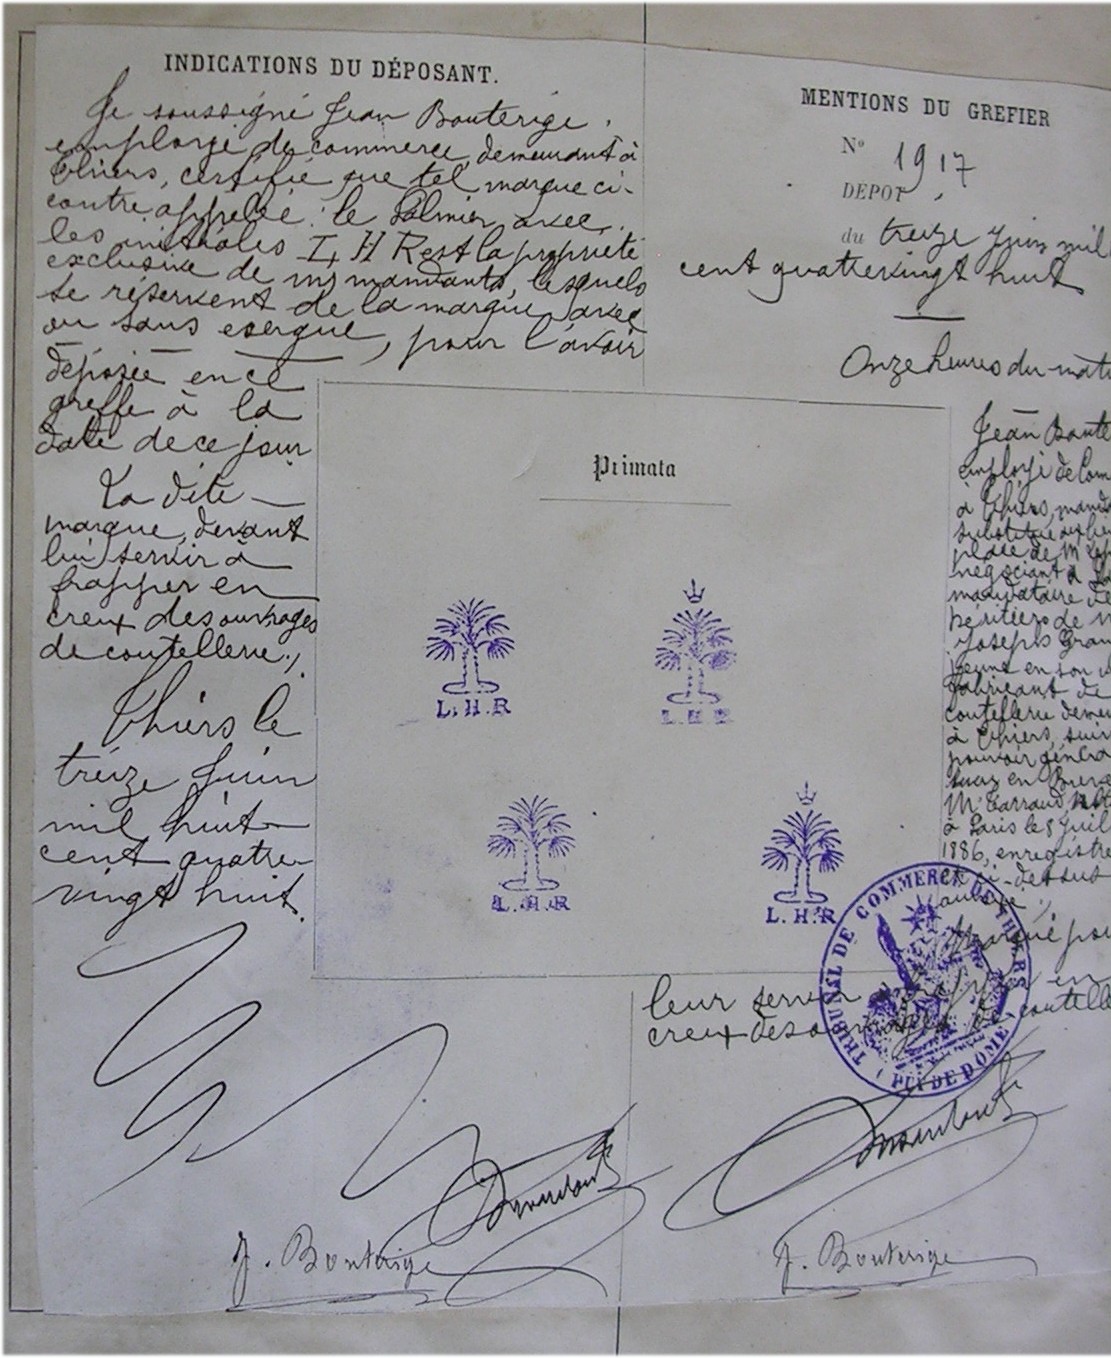 INDICATIONS DU DÉPOSANT.
Je soussigné Jean Bouterige
employé de commerce, demeurant à
Thiers, certifie que tel marque ci-
contre appelée : le Palmier avec
les initiales L H R est la propriété
exclusive de mes mandants, lesquels
se réservent de la marque avec
ou sans exergue, pour l'avoir
déposée en ce
greffe à la
date de ce jour
La dite
marque, devant
lui servir à
frapper en
creux des ouvrages
de coutellerie.
Thiers le
treize Juin
mil huit
cent quatre
vingt huit.
J. Bouterige
MENTIONS DU GREFIER
N° 1917
DÉPOT
du treize Juin mil
cent quatrevingt huit
Onze heures du mat
Primata
L.H.R
L H R
L.H.R
L.H.R
Jean Boute
employé de Com
à Thiers, manda
substitué au lieu
place de M
négociant à
mandataire de
héritiers de
Joseph Gran
jeune en son
fabricant de
coutellerie demeu
à Thiers, suiv
pouvoir généra
en Breve
M. Tarraud
à Paris le 8 Juil
1886, enregistre
ci-dessus
marque pou
leur servir à frapper en
creux des ouvrages de coutelle
TRIBUNAL DE COMMERCE DE THIERS
(PUY DE DOME)
J. Bouterige